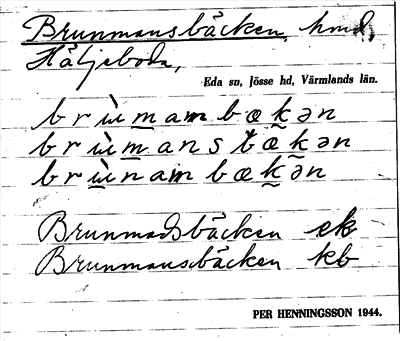 Brunmansbäcken, hmd,
Häljeboda,
Eda sn, Jösse hd, Värmlands län.
brùmambækən
brùmansbækən
brùnambækən
Brunmadsbäcken ek
Brunmansbäcken kb
PER HENNINGSSON 1944.